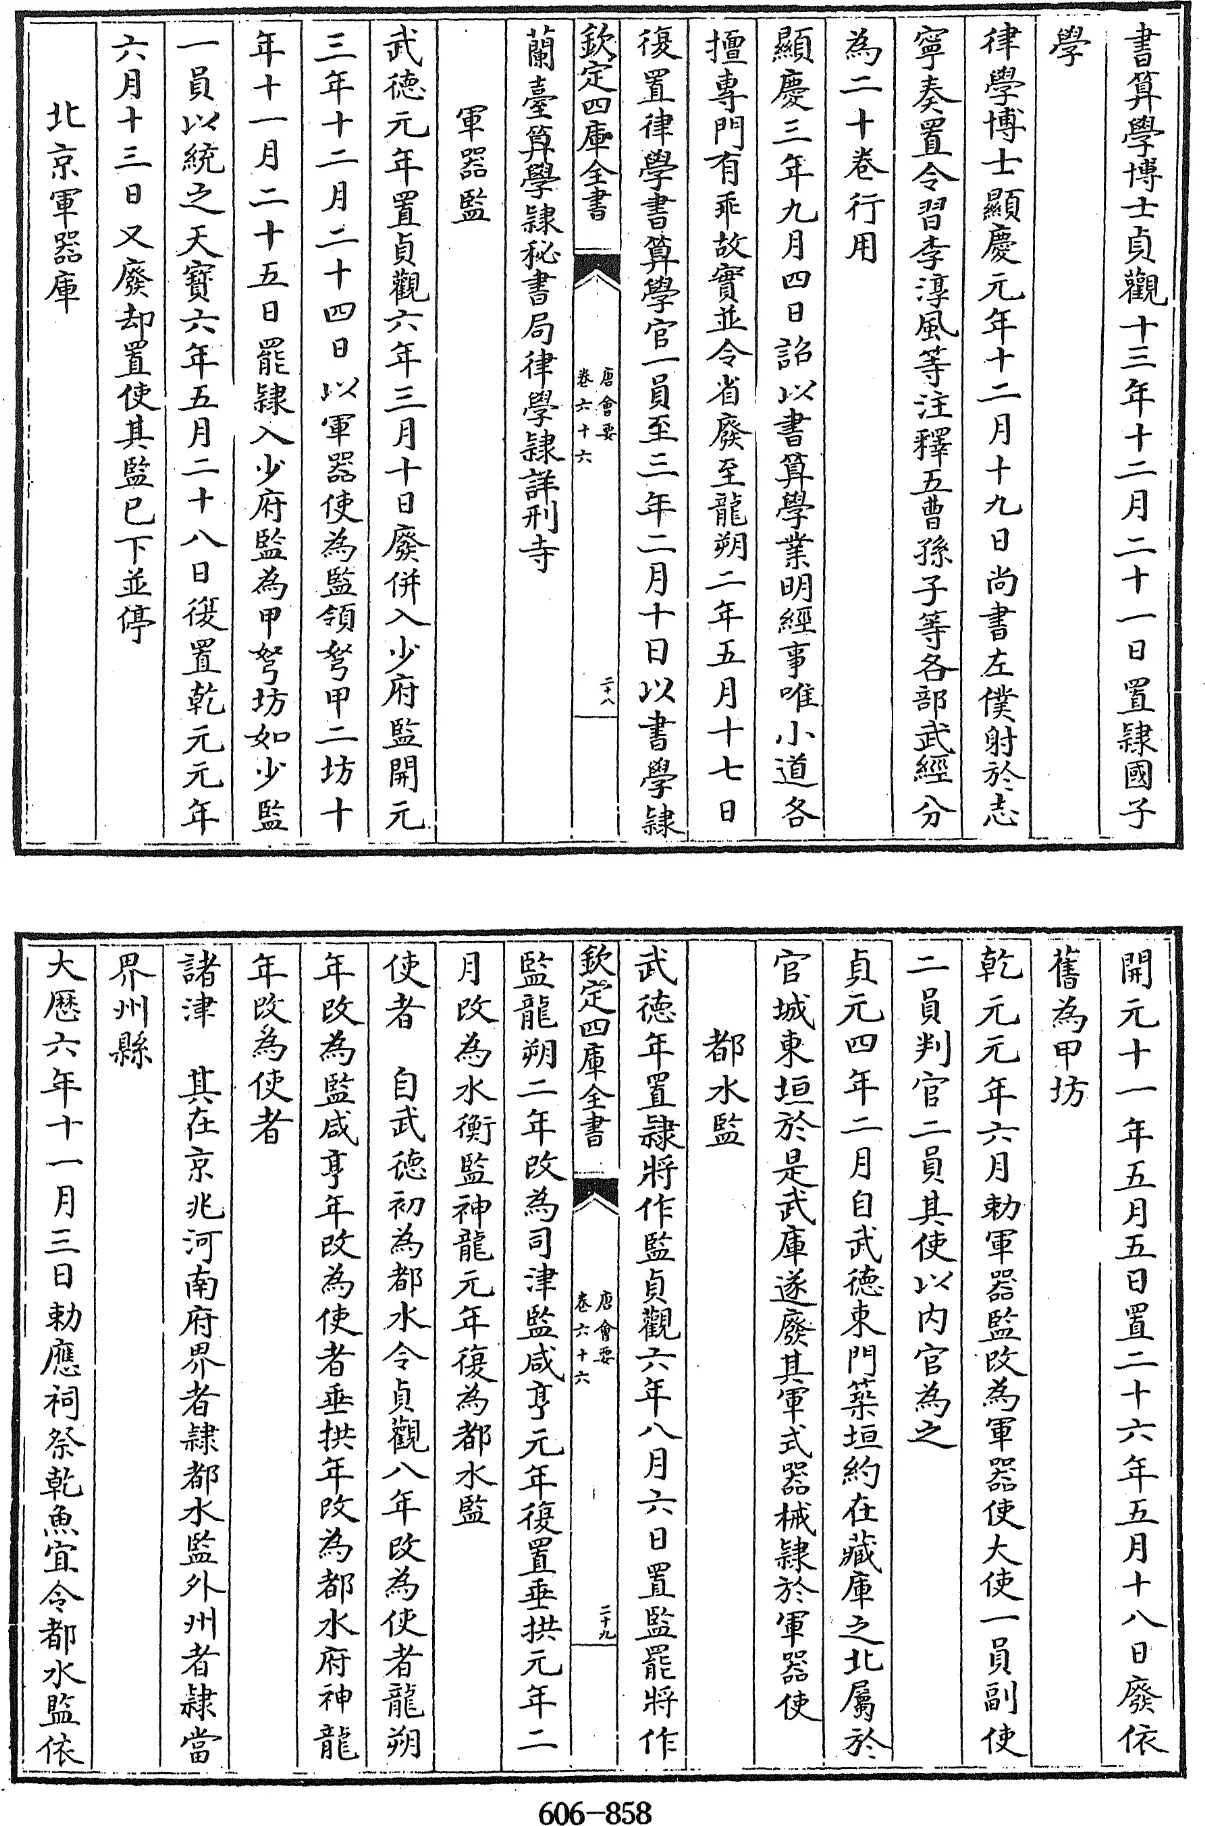 書算學博士貞觀十三年十二月二十一日置隸國子
學
律學博士顯慶元年十二月十九日尚書左僕射於志
寧奏置令習李淳風等注釋五曹孫子等各部武經分
為二十卷行用
顯慶三年九月四日詔以書算學業明經事唯小道各
擅專門有乖故實並令省廢至龍朔二年五月十七日
復置律學書算學官一員至三年二月十日以書學隸
欽定四庫全書
唐會要
卷六十六
二十八
蘭臺算學隸秘書局律學隸詳刑寺
軍器監
武德元年置貞觀六年三月十日廢併入少府監開元
三年十二月二十四日以軍器使為監領弩甲二坊十
年十一月二十五日罷隸入少府監為甲弩坊如少監
一員以統之天寶六年五月二十八日復置乾元元年
六月十三日又廢却置使其監已下並停
北京軍器庫
開元十一年五月五日置二十六年五月十八日廢依
舊為甲坊
乾元元年六月勅軍器監改為軍器使大使一員副使
二員判官二員其使以内官為之
貞元四年二月自武德東門築垣約在藏庫之北屬於
官城東垣於是武庫遂廢其軍式器械隸於軍器使
都水監
武德年置隸將作監貞觀六年八月六日置監罷將作
欽定四庫全書
唐會要
卷六十六
二十九
監龍朔二年改為司津監咸亨元年復置垂拱元年二
月改為水衡監神龍元年復為都水監
使者 自武德初為都水令貞觀八年改為使者龍朔
年改為監咸亨年改為使者垂拱年改為都水府神龍
年改為使者
諸津 其在京兆河南府界者隸都水監外州者隸當
界州縣
大歷六年十一月三日勅應祠祭乾魚宜令都水監依
606-858